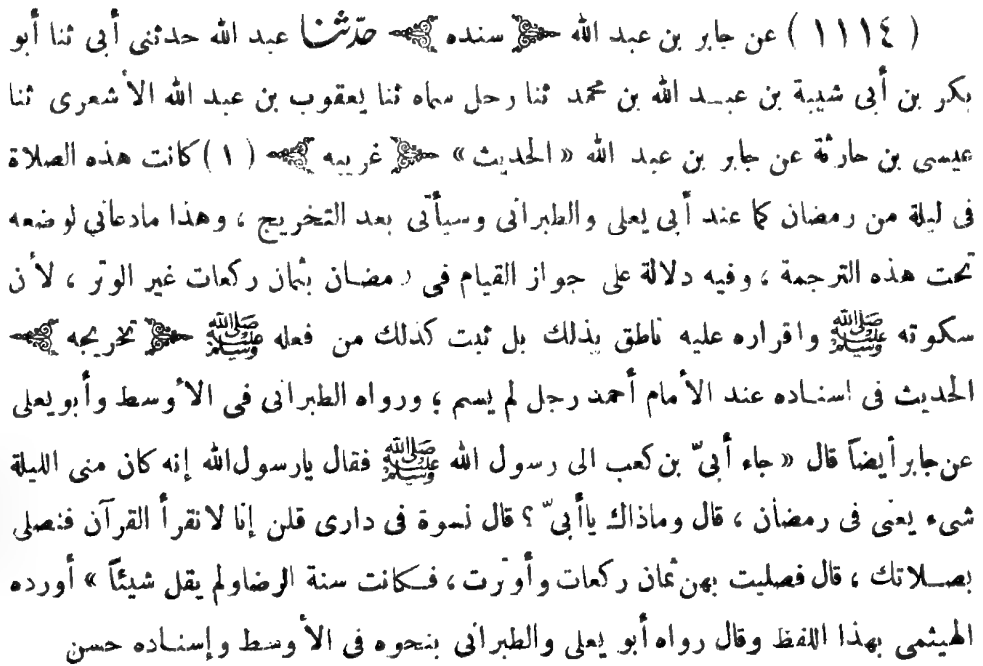 ( ١١١٤ ) عن جابر بن عبد الله ﴿ سنده ﴾ حدّثنا عبد الله حدثنى أبى ثنا أبو
بكر بن أبى شيبة بن عبــد الله بن محمد ثنا رحل سماه ثنا يعقوب بن عبد الله الأشعرى ثنا
عيسى بن حارثة عن جابر بن عبد الله « الحديث » ﴿ غريبه ﴾ ( ١ ) كانت هذه الصلاة
فى ليلة من رمضان كما عند أبى يعلى والطبرانى وسيأتى بعد التخريج ، وهذا مادعانى لوضعه
تحت هذه الترجمة ، وفيه دلالة على جواز القيام فى رمضــان بثمان ركعات غير الوتر ، لأن
سكوته ﷺ واقراره عليه ناطق بذلك بل ثبت كذلك من فعله ﷺ ﴿ تخريجه ﴾
الحديث فى اسنــاده عند الأمام أحمد رجل لم يسم ؛ ورواه الطبرانى فى الأوسط وأبويعلى
عن جابر أيضاً قال « جاء أبىّ بن كعب الى رسول الله ﷺ فقال يارسول الله إنه كان منى الليلة
شىء يعنى فى رمضان ، قال وماذاك ياأبىّ ؟ قال نسوة فى دارى قلن إنا لانقرأ القرآن فنصلى
بصــلاتك ، قال فصليت بهن ثمان ركعات وأوترت ، فــكانت سنة الرضاولم يقل شيئاً » أورده
الهيثمى بهذا اللفظ وقال رواه أبو يعلى والطبرانى بنحوه فى الأوسط وإسنــاده حسن